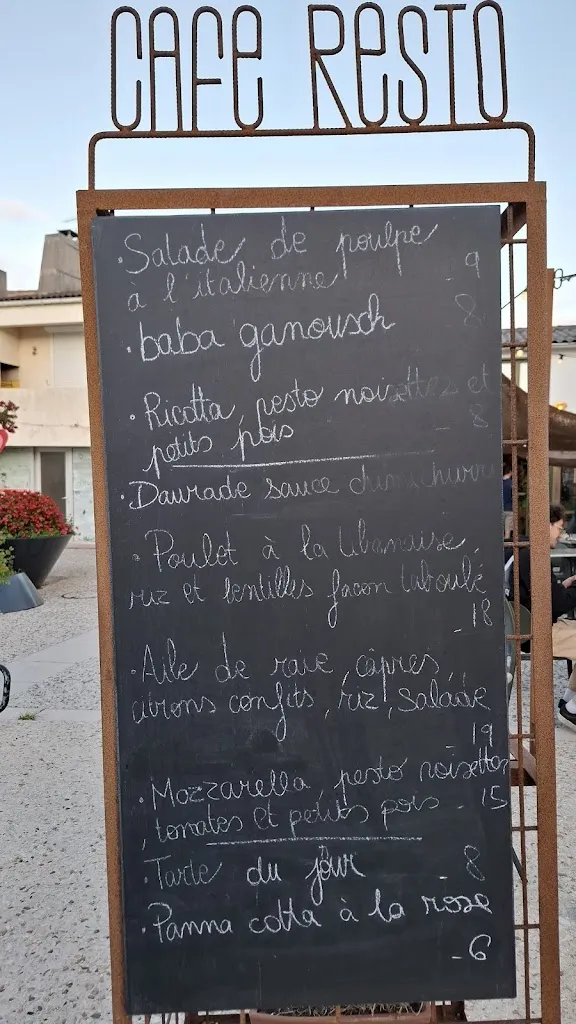 CAFE RESTO
· Salade de poulpe
à l'italienne - 9
· baba ganousch 8
· Ricotta, pesto noisettes et
petits pois - 8
· Daurade sauce chimichurri
· Poulet à la libanaise,
riz et lentilles façon taboulé
- 18
· Aile de raie, câpres,
citrons confits, riz, salade
19
· Mozzarella, pesto noisettes
, tomates et petits pois - 15
· Tarte du jour - 8
· Panna cotta à la rose
- 6